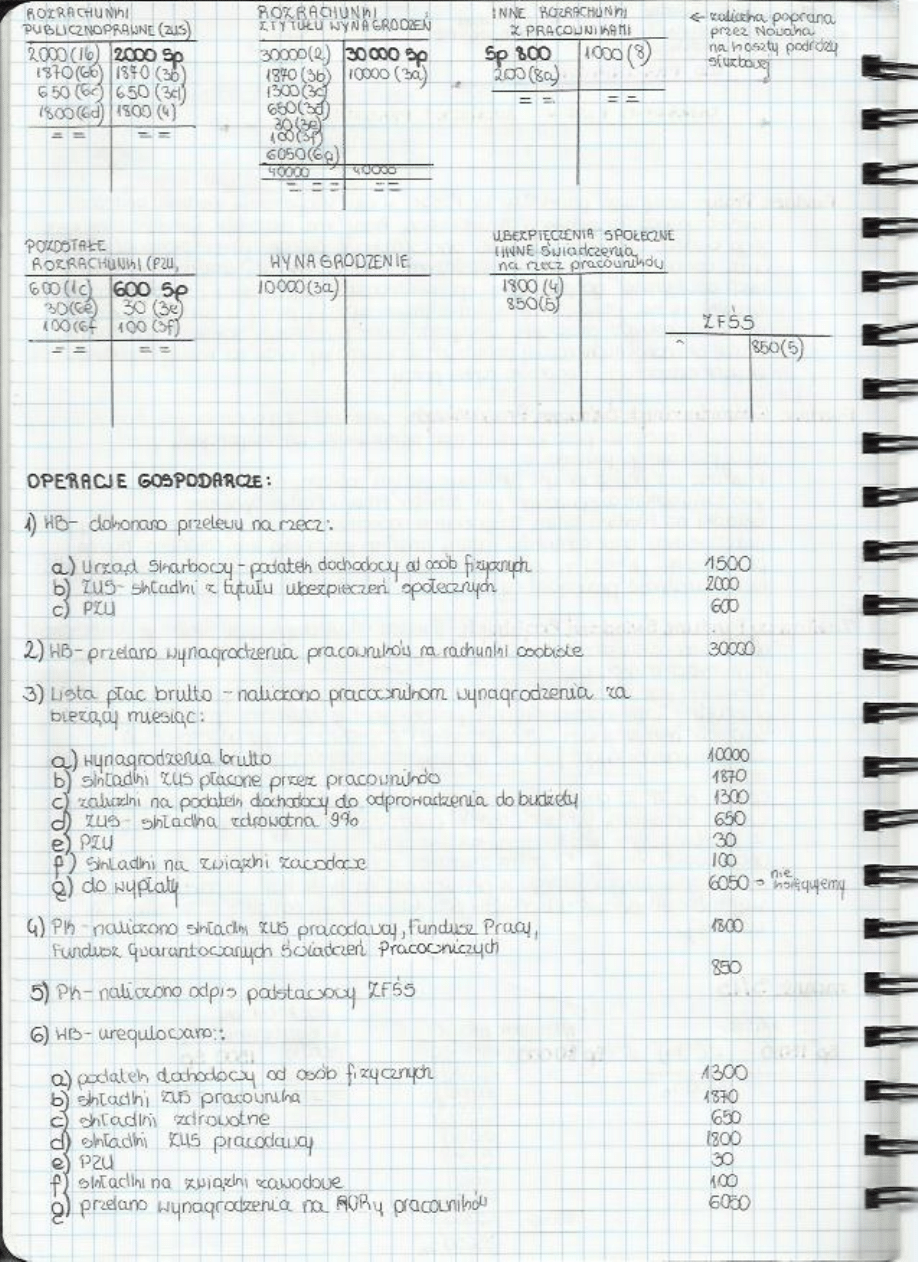 ROZRACHUNKI
PUBLICZNOPRAWNE (ZUS)
2000 (1b) 2000 Sp
1870 (6b) 1870 (3b)
650 (6c) 650 (3d)
1800 (6d) 1800 (4)
= = = =
ROZRACHUNKI
Z TYTUŁU WYNAGRODZEŃ
30000 (2) 30000 Sp
1870 (3b) 10000 (3a)
1300 (3c)
650 (3d)
30 (3e)
100 (3f)
6050 (6g)
40000 40000
= = = = =
INNE ROZRACHUNKI
Z PRACOWNIKAMI
Sp 800 1000 (8)
200 (8a)
= = = =
← zaliczka poprana
przez Nowaka
na koszty podróży
służbowej
POZOSTAŁE
ROZRACHUNKI (PZU,
600 (1c) 600 Sp
30 (6e) 30 (3e)
100 (6f 100 (3f)
= = = =
WYNAGRODZENIE
10000 (3a)
UBEZPIECZENIA SPOŁECZNE
I INNE świadczenia
na rzecz pracowników
1800 (4)
850 (5)
ZFŚS
850 (5)
OPERACJE GOSPODARCZE:
1) WB- dokonano przelewu na rzecz:
a) Urząd Skarbowy - podatek dochodowy od osób fizycznych 1500
b) ZUS- składki z tytułu ubezpieczeń społecznych 2000
c) PZU 600
2) WB- przelano wynagrodzenia pracowników na rachunki osobiste 30000
3) Lista płac brutto - naliczono pracownikom wynagrodzenia za
bieżący miesiąc:
a) wynagrodzenia brutto 10000
b) składki ZUS płacone przez pracowników 1870
c) zaliczki na podatek dochodowy do odprowadzenia do budżetu 1300
d) ZUS- składka zdrowotna 9% 650
e) PZU 30
f) Składki na związki zawodowe 100
g) do wypłaty 6050 → nie księgujemy
4) PK - naliczono składki ZUS pracodawcy, Fundusz Pracy, 1800
Fundusz Gwarantowanych Świadczeń Pracowniczych
850
5) PK- naliczono odpis podstawowy ZFŚS
6) WB- uregulowano::
a) podatek dochodowy od osób fizycznych 1300
b) składki ZUS pracownika 1870
c) składki zdrowotne 650
d) składki ZUS pracodawcy 1800
e) PZU 30
f) składki na związki zawodowe 100
g) przelano wynagrodzenia na RORy pracowników 6050